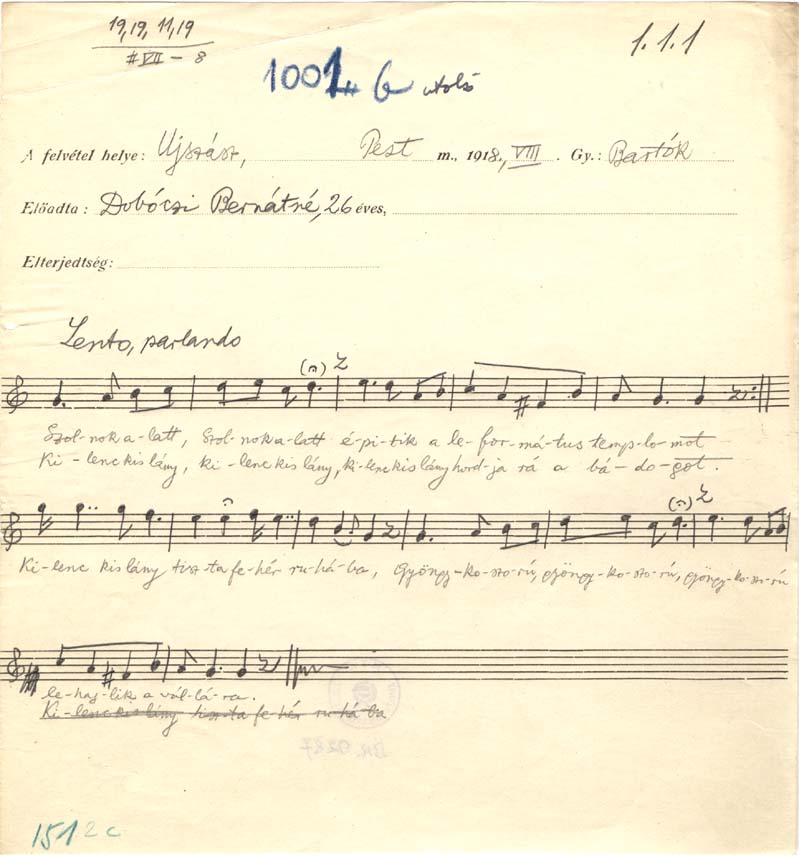 19, 19, 11, 19
# VII – 8
1. 1. 1
1001 b utolsó
A felvétel helye: Ujszász, Pest m., 1918, VIII. Gy.: Bartók
Előadta: Dobóczi Bernátné, 26 éves,
Elterjedtség:
Lento, parlando
Szol-nok a-latt, Szol-nok a-latt é-pi-tik a le-for-má-tus temp-lo-mot
Ki-lenc kis lány, ki-lenc kis lány, ki-lenc kis lány hord-ja rá a bá-do-got.
Ki-lenc kis lány tisz-ta fe-hér ru-há-ba, Gyöngy-ko-szo-rú, gyöngy-ko-szo-rú, gyöngy-ko-szo-rú
le-haj-lik a vál-lá-ra.
Ki-lenc kis lány tisz-ta fe-hér ru-há-ba
BR. 9287
1512 c